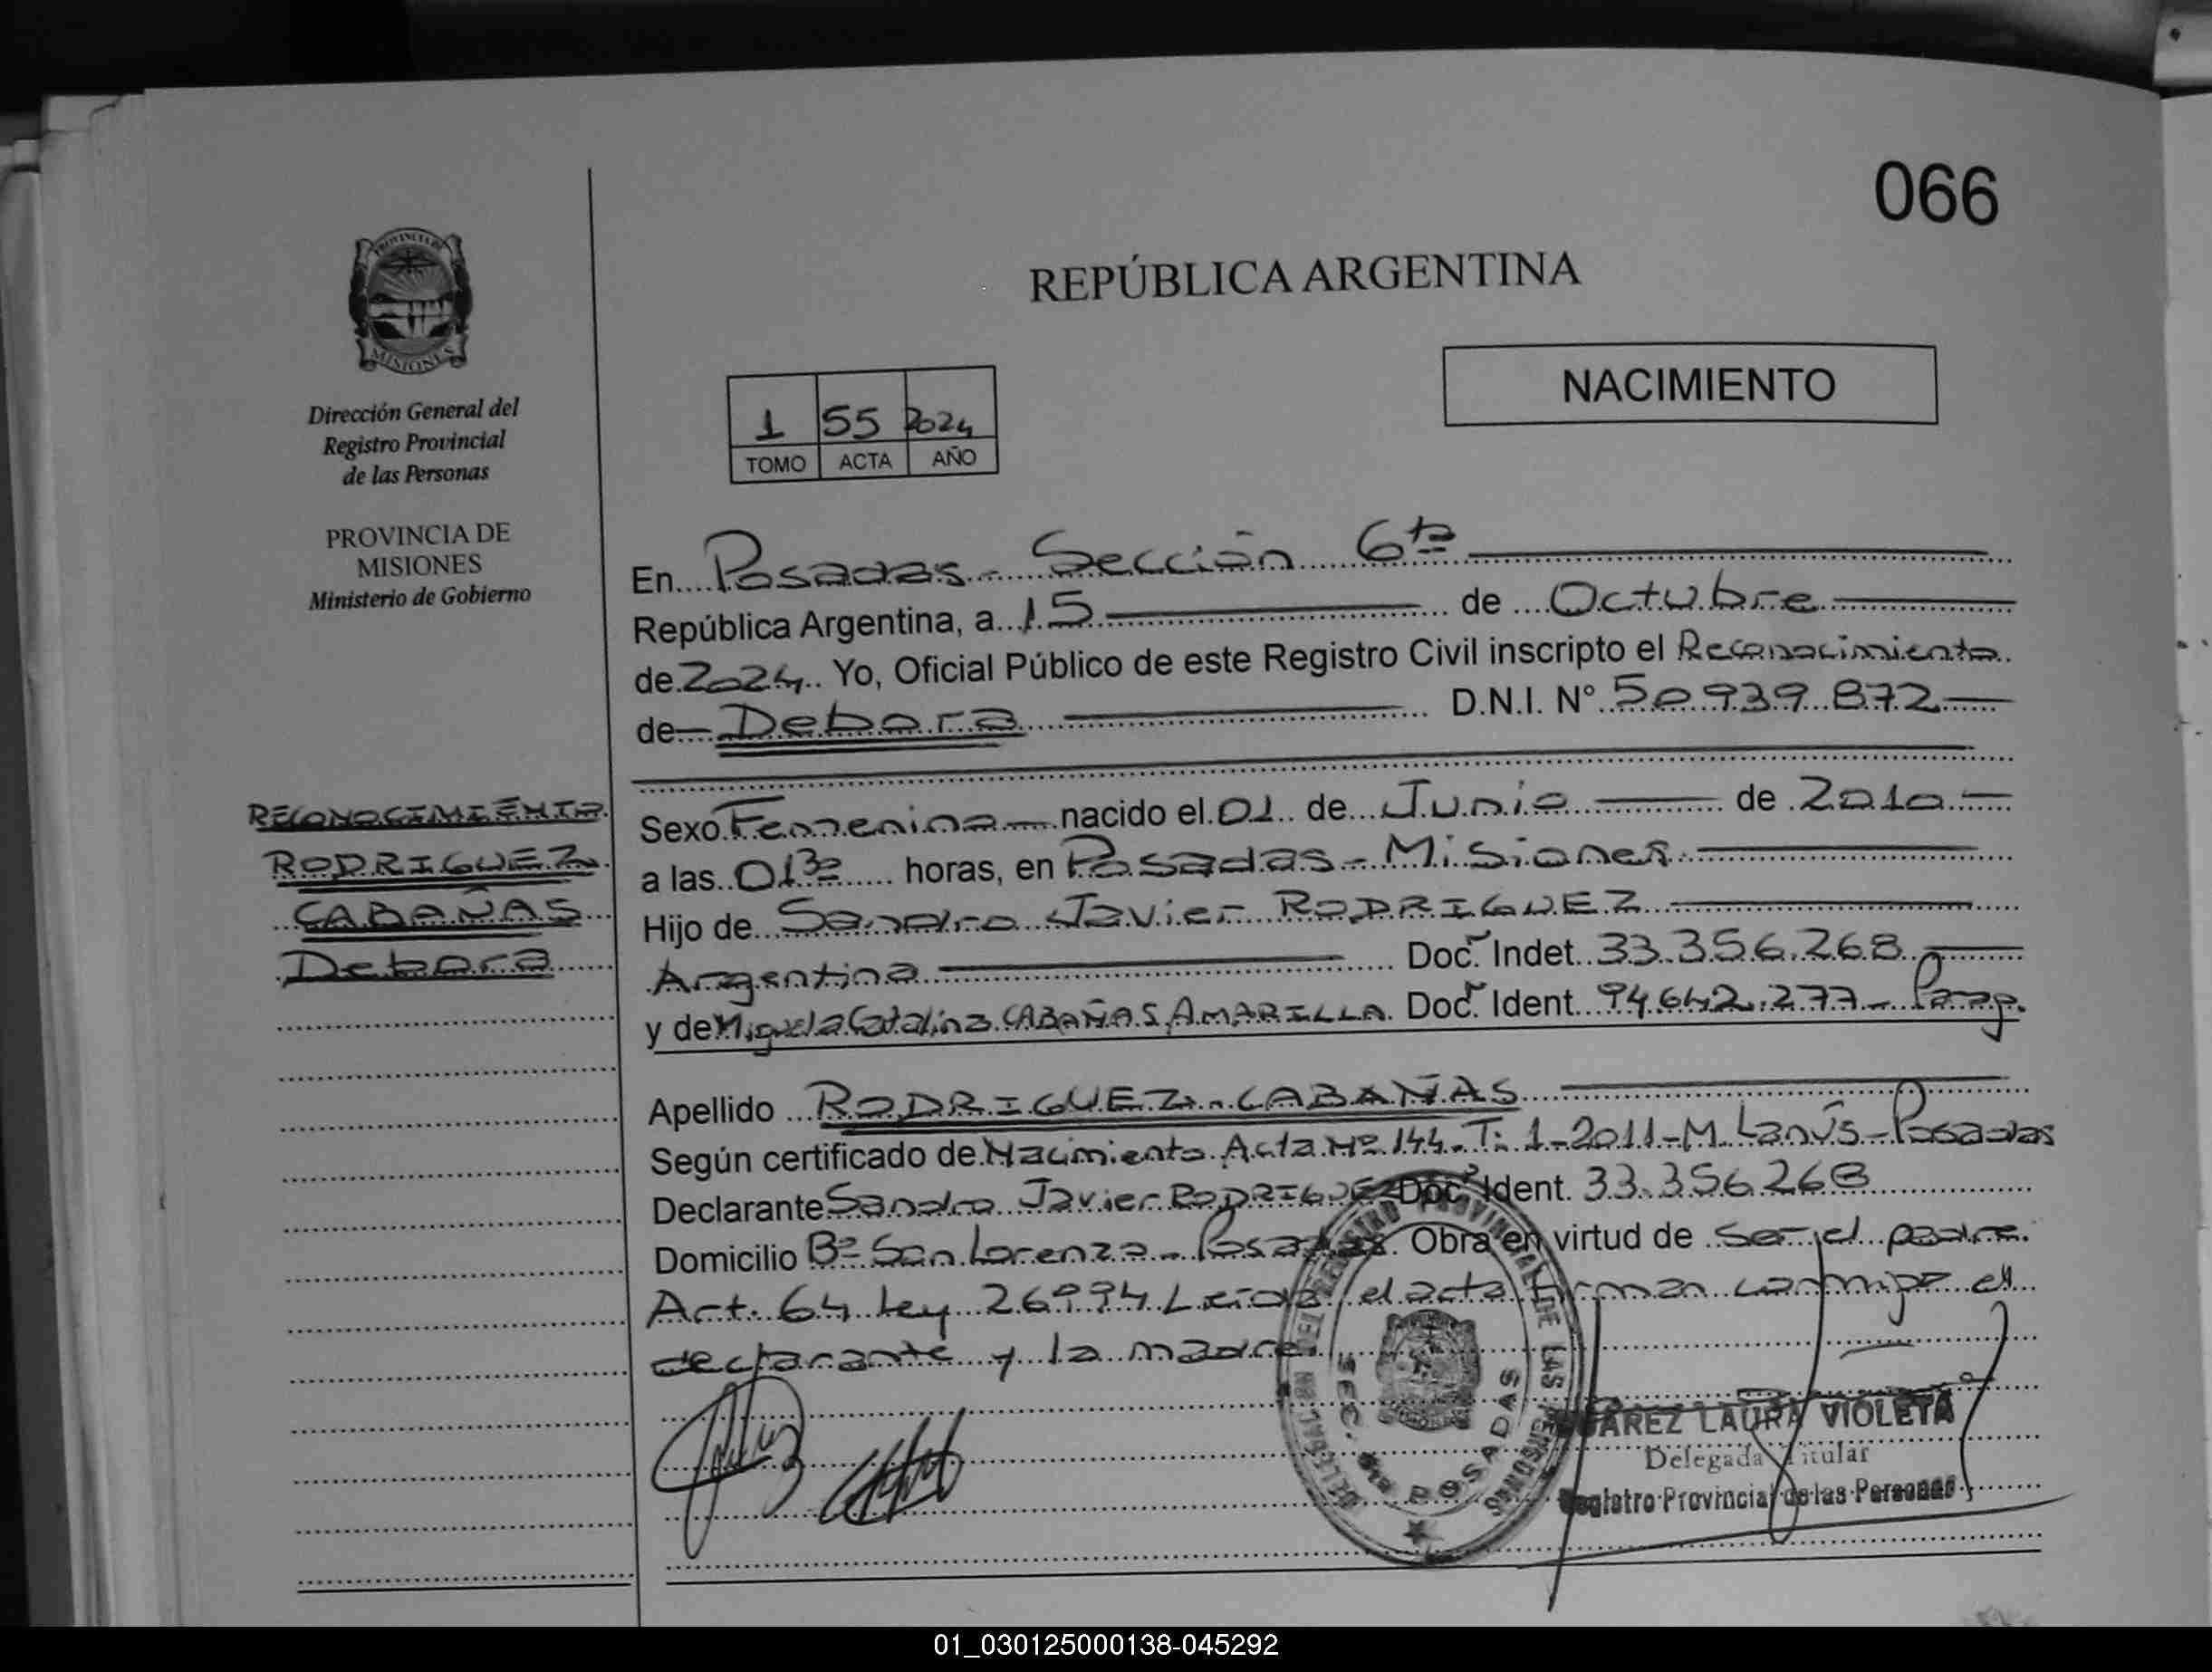 066
PROVINCIA DE
MISIONES
REPÚBLICA ARGENTINA
NACIMIENTO
1 55 2024
TOMO ACTA AÑO
Dirección General del
Registro Provincial
de las Personas
PROVINCIA DE
MISIONES
Ministerio de Gobierno
RECONOCIMIENTO
RODRIGUEZ
CABAÑAS
Debora
En Posadas - Sección 6ta
República Argentina, a 15 de Octubre
de 2024 Yo, Oficial Público de este Registro Civil inscripto el Reconocimiento
de Debora D.N.I. N° 50.939.872
Sexo Femenino nacido el 01 de Junio de 2010
a las 01 30 horas, en Posadas - Misiones
Hijo de Sandro Javier RODRIGUEZ
Argentino Doc. Indet. 33.356.268
y de Miguela Catalina CABAÑAS AMARILLA Doc. Ident. 94.642.277 - Parag.
Apellido RODRIGUEZ CABAÑAS
Según certificado de Nacimiento Acta Nº 144 - T: 1 - 2011 - M. Lanús - Posadas
Declarante Sandro Javier RODRIGUEZ Doc. Ident. 33.356.268
Domicilio Bº San Lorenzo - Posadas. Obra en virtud de ser el padre.
Art. 64 Ley 26994 Leída el acta firman conmigo el
declarante y la madre.
DELEGAC. DEL REGISTRO PROVINCIAL DE LAS PERSONAS
SEC. 6ta POSADAS
LAURA VIOLETA
Delegada Titular
Registro Provincial de las Personas
01_030125000138-045292